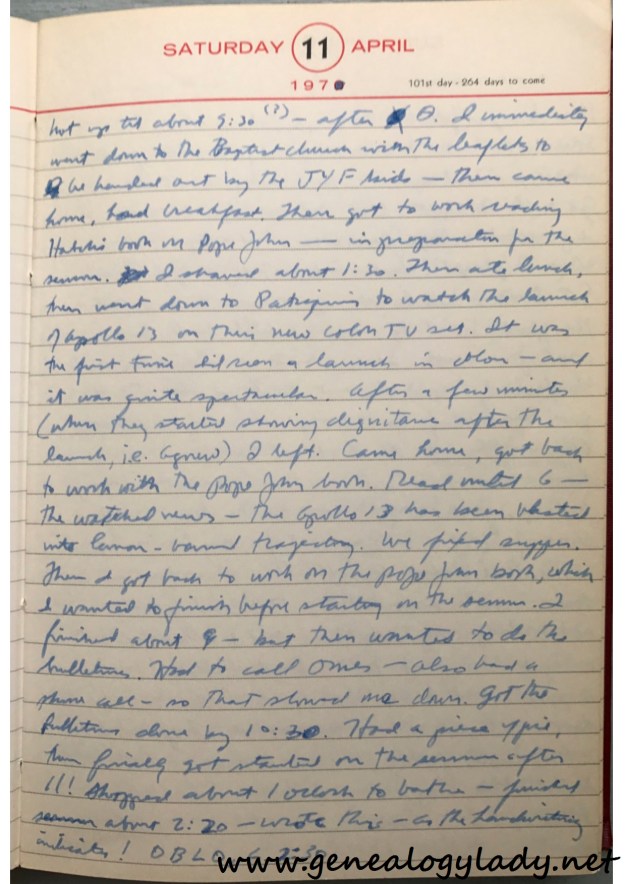 SATURDAY 11 APRIL
1970
101st day - 264 days to come
Not up til about 9:30 (?) - after θ. I immediately
went down to the Baptist church with the leaflets to
be handed out by the JYF kids — then came
home, had breakfast. Then got to work reading
Hatch's book on Pope John — in preparation for the
sermon. I shaved about 1:30. Then ate lunch,
then went down to to watch the launch
of Apollo 13 on their new color TV set. It was
the first time I'd seen a launch in color - and
it was quite spectacular. After a few minutes
(when they started showing dignitaries after the
launch, i.e. Agnew) I left. Came home, got back
to work with the Pope John book. Read until 6 —
the watched news - the Apollo 13 has been blasted
into lunar-bound trajectory. We fixed supper.
Then I got back to work on the Pope John book, which
I wanted to finish before starting on the sermon. I
finished about 9 - but then wanted to do the
bulletins. Had to call - also had a
phone call - so that slowed me down. Got the
bulletins done by 10:30. Had a piece of pie,
then finally got started on the sermon after
11! Stopped about 1 o'clock to bathe - finished
sermon about 2:20 - wrote this - as the handwriting
indicates! 2:30
www.genealogylady.net